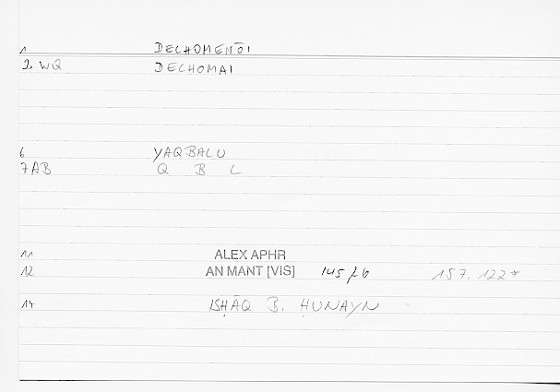 1 DECHOMENŌI
2. WQ DECHOMAI
6 YAQBALU
7AB Q B L
11 ALEX APHR
12 AN MANT [VIS] 145,6 157.122*
14 ISḤĀQ B. ḤUNAYN